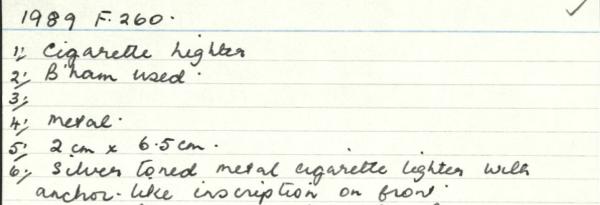 1989 F. 260.
1; Cigarette lighter
2; B'ham used.
3;
4; metal.
5; 2 cm x 6.5 cm.
6; Silver toned metal cigarette lighter with
anchor-like inscription on front.